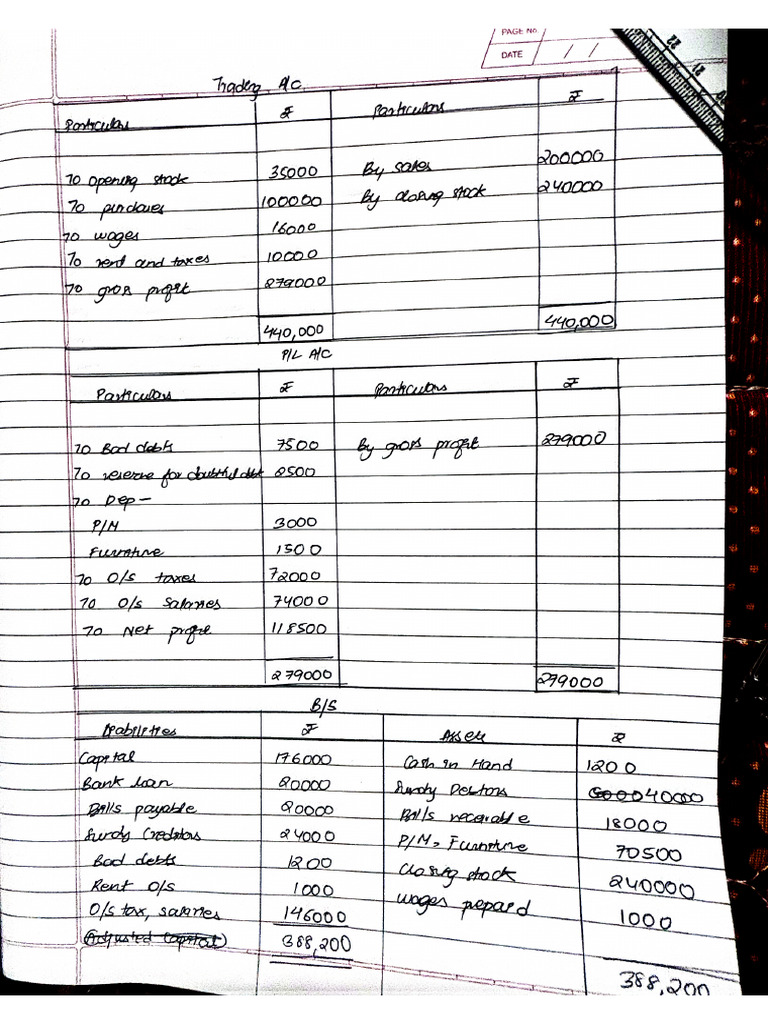 PAGE No.
DATE / /
22
21
Trading A/C.
Particulars ₹ Particulars ₹
To opening stock 35000 By sales 200000
To purchases 100000 By closing stock 240000
To wages 16000
To rent and taxes 10000
To gross profit 279000
440,000 440,000
P/L A/C
Particulars ₹ Particulars ₹
To Bad debts 7500 By gross profit 279000
To reserve for doubtful debt 2500
To Dep-
P/M 3000
Furniture 1500
To O/S taxes 72000
To O/S salaries 74000
To Net profit 118500
279000 279000
B/S
Liabilities ₹ Assets ₹
Capital 176000 Cash in Hand 1200
Bank loan 20000 Sundry Debtors 40000
Bills payable 20000 Bills receivable 18000
Sundry Creditors 24000 P/M, Furniture 70500
Bad debts 1200 Closing stock 240000
Rent O/S 1000 wages prepard 1000
O/s tax, salaries 146000
(Adjusted Capital) 388,200
388,200